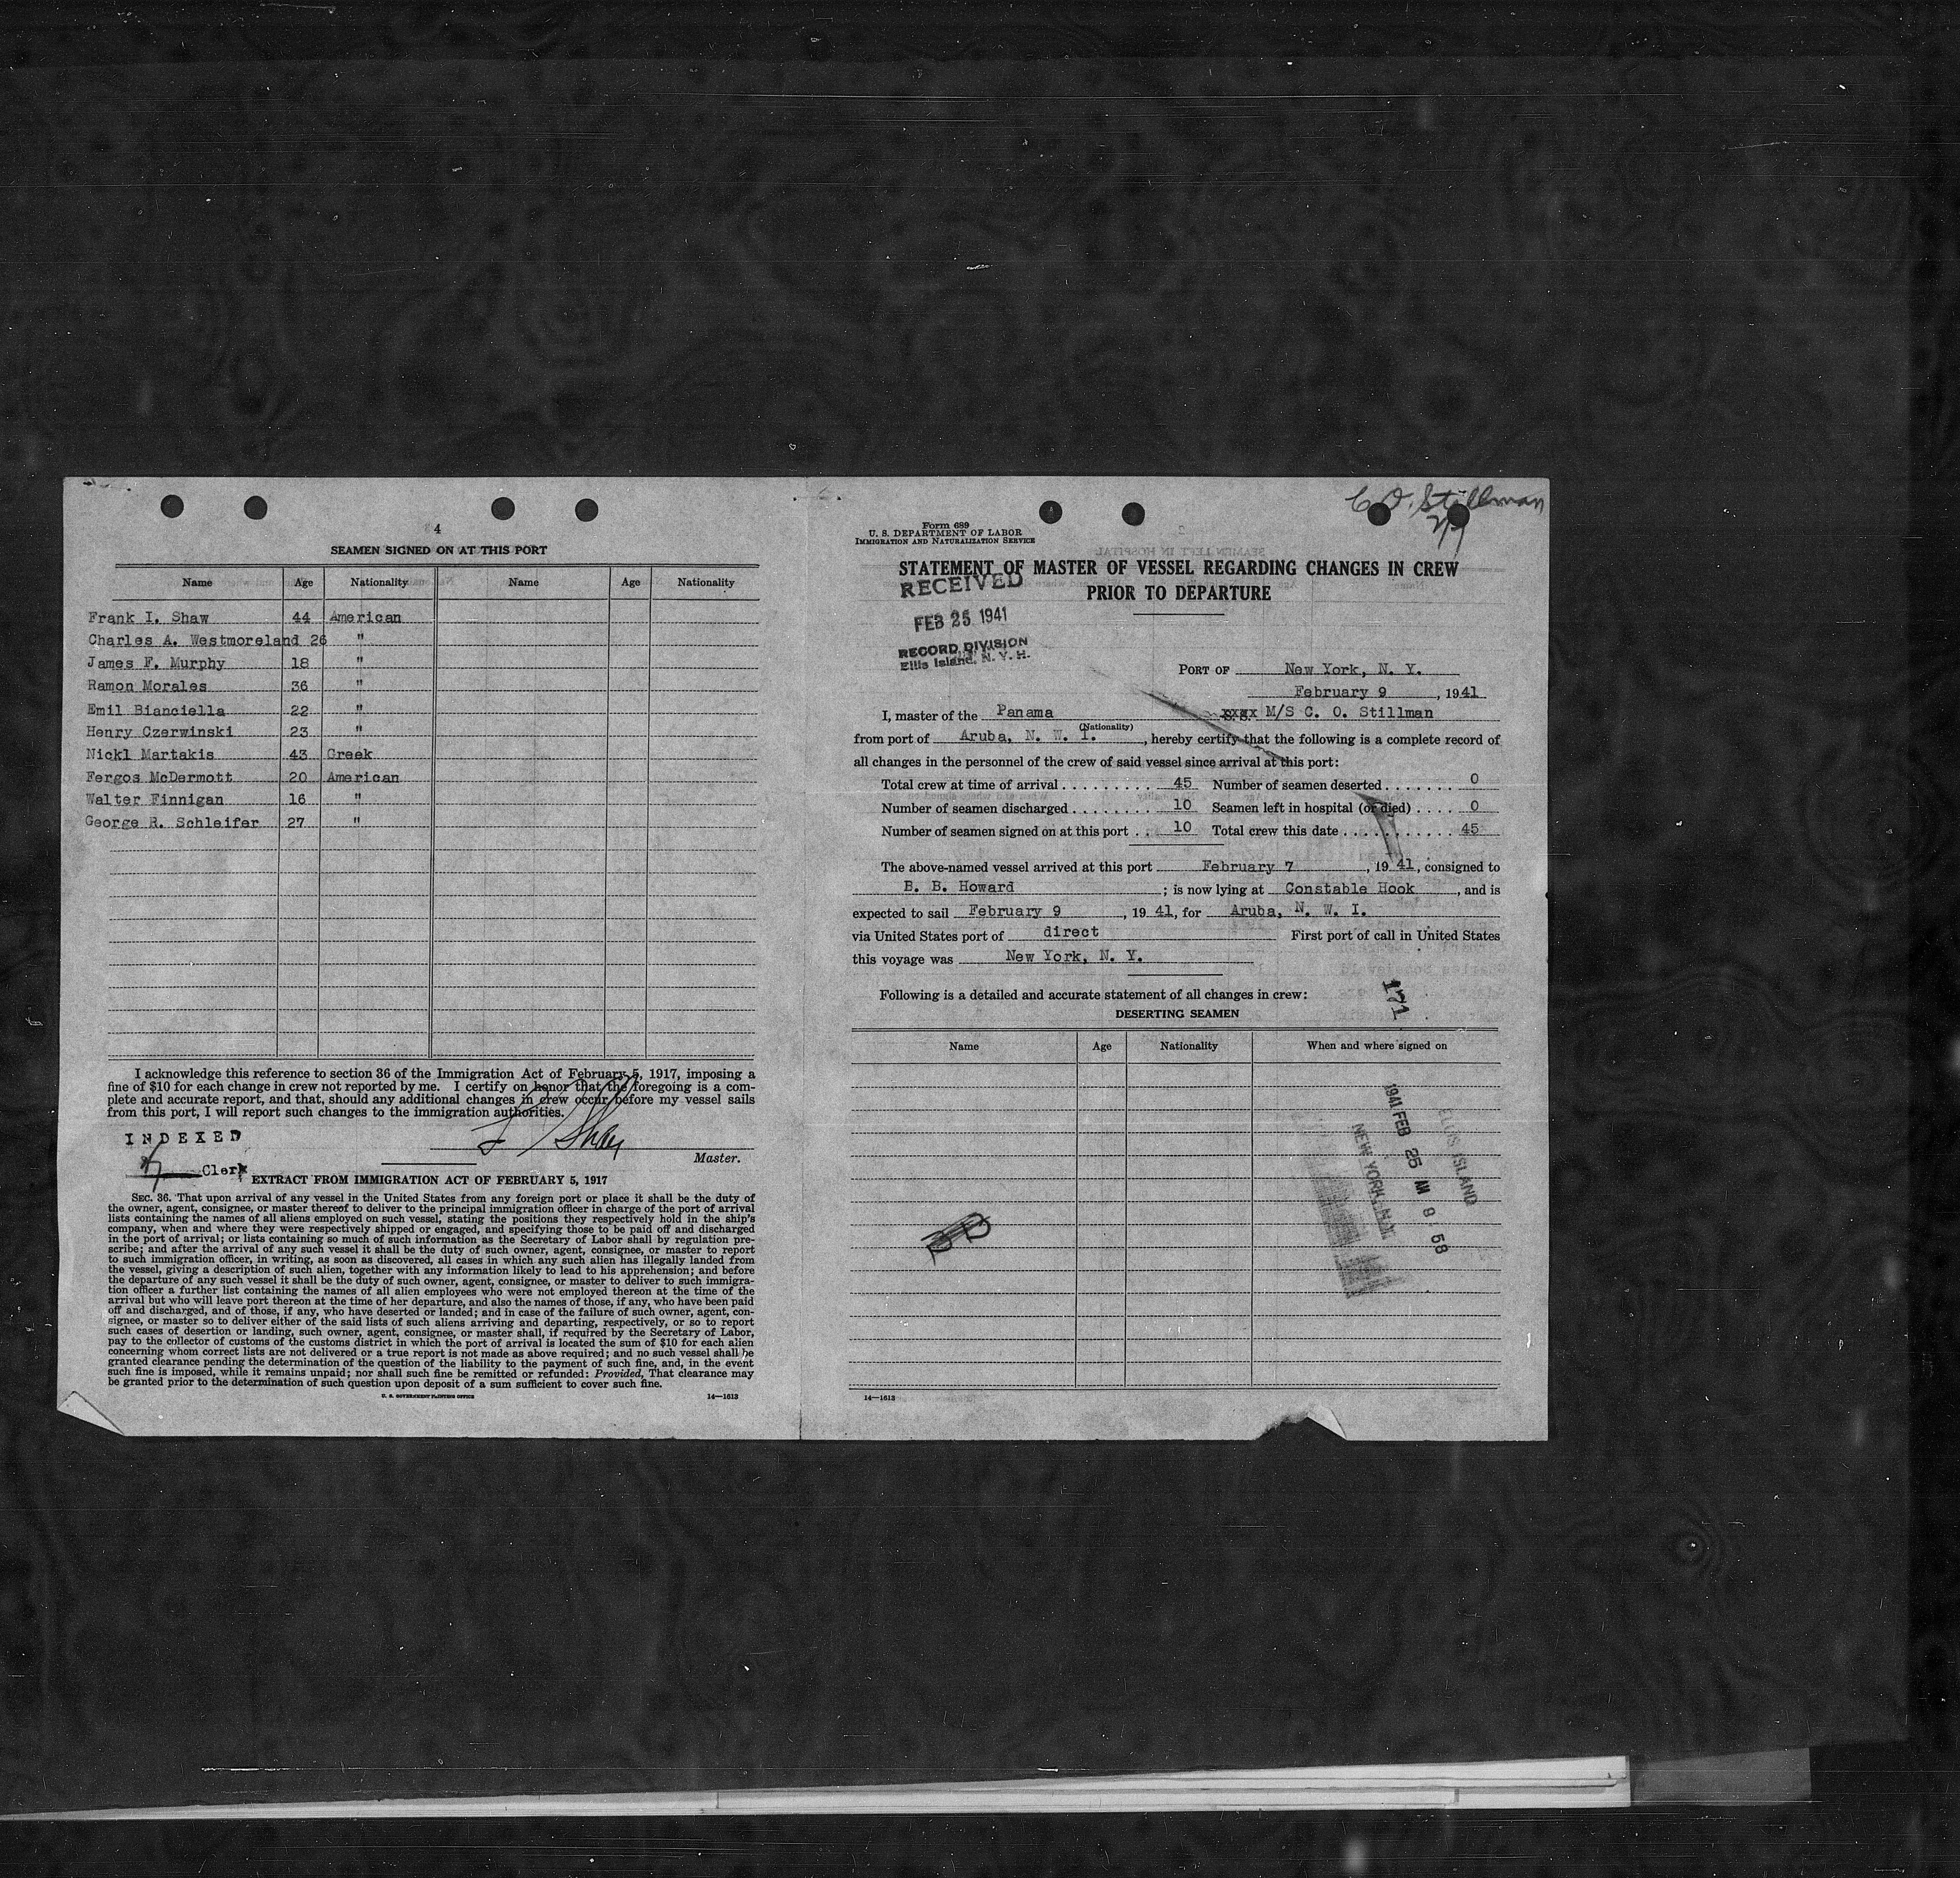 4
SEAMEN SIGNED ON AT THIS PORT
Name Age Nationality Name Age Nationality
Frank I. Shaw 44 American
Charles A. Westmoreland 26 "
James F. Murphy 18 "
Ramon Morales 36 "
Emil Bianciella 22 "
Henry Czerwinski 23 "
Nickl Martakis 43 Greek
Fergos McDermott 20 American
Walter Finnigan 16 "
George R. Schleifer 27 "
I acknowledge this reference to section 36 of the Immigration Act of February 5, 1917, imposing a
fine of $10 for each change in crew not reported by me. I certify on honor that the foregoing is a com-
plete and accurate report, and that, should any additional changes in crew occur before my vessel sails
from this port, I will report such changes to the immigration authorities.
INDEXED
Shaw
Master.
Clerk
EXTRACT FROM IMMIGRATION ACT OF FEBRUARY 5, 1917
SEC. 36. That upon arrival of any vessel in the United States from any foreign port or place it shall be the duty of
the owner, agent, consignee, or master thereof to deliver to the principal immigration officer in charge of the port of arrival
lists containing the names of all aliens employed on such vessel, stating the positions they respectively hold in the ship's
company, when and where they were respectively shipped or engaged, and specifying those to be paid off and discharged
in the port of arrival; or lists containing so much of such information as the Secretary of Labor shall by regulation pre-
scribe; and after the arrival of any such vessel it shall be the duty of such owner, agent, consignee, or master to report
to such immigration officer, in writing, as soon as discovered, all cases in which any such alien has illegally landed from
the vessel, giving a description of such alien, together with any information likely to lead to his apprehension; and before
the departure of any such vessel it shall be the duty of such owner, agent, consignee, or master to deliver to such immigra-
tion officer a further list containing the names of all alien employees who were not employed thereon at the time of the
arrival but who will leave port thereon at the time of her departure, and also the names of those, if any, who have been paid
off and discharged, and of those, if any, who have deserted or landed; and in case of the failure of such owner, agent, con-
signee, or master so to deliver either of the said lists of such aliens arriving and departing, respectively, or so to report
such cases of desertion or landing, such owner, agent, consignee, or master shall, if required by the Secretary of Labor,
pay to the collector of customs of the customs district in which the port of arrival is located the sum of $10 for each alien
concerning whom correct lists are not delivered or a true report is not made as above required; and no such vessel shall be
granted clearance pending the determination of the question of the liability to the payment of such fine, and, in the event
such fine is imposed, while it remains unpaid; nor shall such fine be remitted or refunded: Provided, That clearance may
be granted prior to the determination of such question upon deposit of a sum sufficient to cover such fine.
U. S. GOVERNMENT PRINTING OFFICE 14—1613
C. O. Stillman
2/9
Form 689
U. S. DEPARTMENT OF LABOR
IMMIGRATION AND NATURALIZATION SERVICE
STATEMENT OF MASTER OF VESSEL REGARDING CHANGES IN CREW
PRIOR TO DEPARTURE
RECEIVED
FEB 25 1941
RECORD DIVISION
Ellis Island, N. Y. H.
PORT OF New York, N. Y.
February 9, 1941
I, master of the Panama xxgx M/S C. O. Stillman
(Nationality)
from port of Aruba, N. W. I., hereby certify that the following is a complete record of
all changes in the personnel of the crew of said vessel since arrival at this port:
Total crew at time of arrival . . . . . . . . . 45 Number of seamen deserted . . . . . . . 0
Number of seamen discharged . . . . . . . 10 Seamen left in hospital (or died) . . . . 0
Number of seamen signed on at this port . . 10 Total crew this date . . . . . . . . . . 45
The above-named vessel arrived at this port February 7, 1941, consigned to
B. B. Howard; is now lying at Constable Hook, and is
expected to sail February 9, 1941, for Aruba, N. W. I.
via United States port of direct First port of call in United States
this voyage was New York, N. Y.
Following is a detailed and accurate statement of all changes in crew:
171
DESERTING SEAMEN
Name Age Nationality When and where signed on
ELLIS ISLAND
1941 FEB 25 AM 9:58
NEW YORK, N.Y.
14—1613